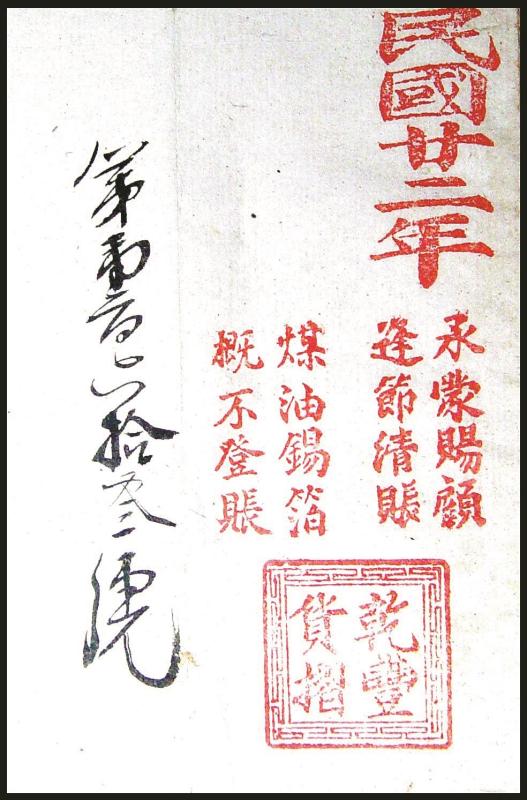 民國廿二年
承蒙賜顧
逢節清賬
煤油錫箔
概不登賬
乾豐
貨摺
第兩百六拾叁號